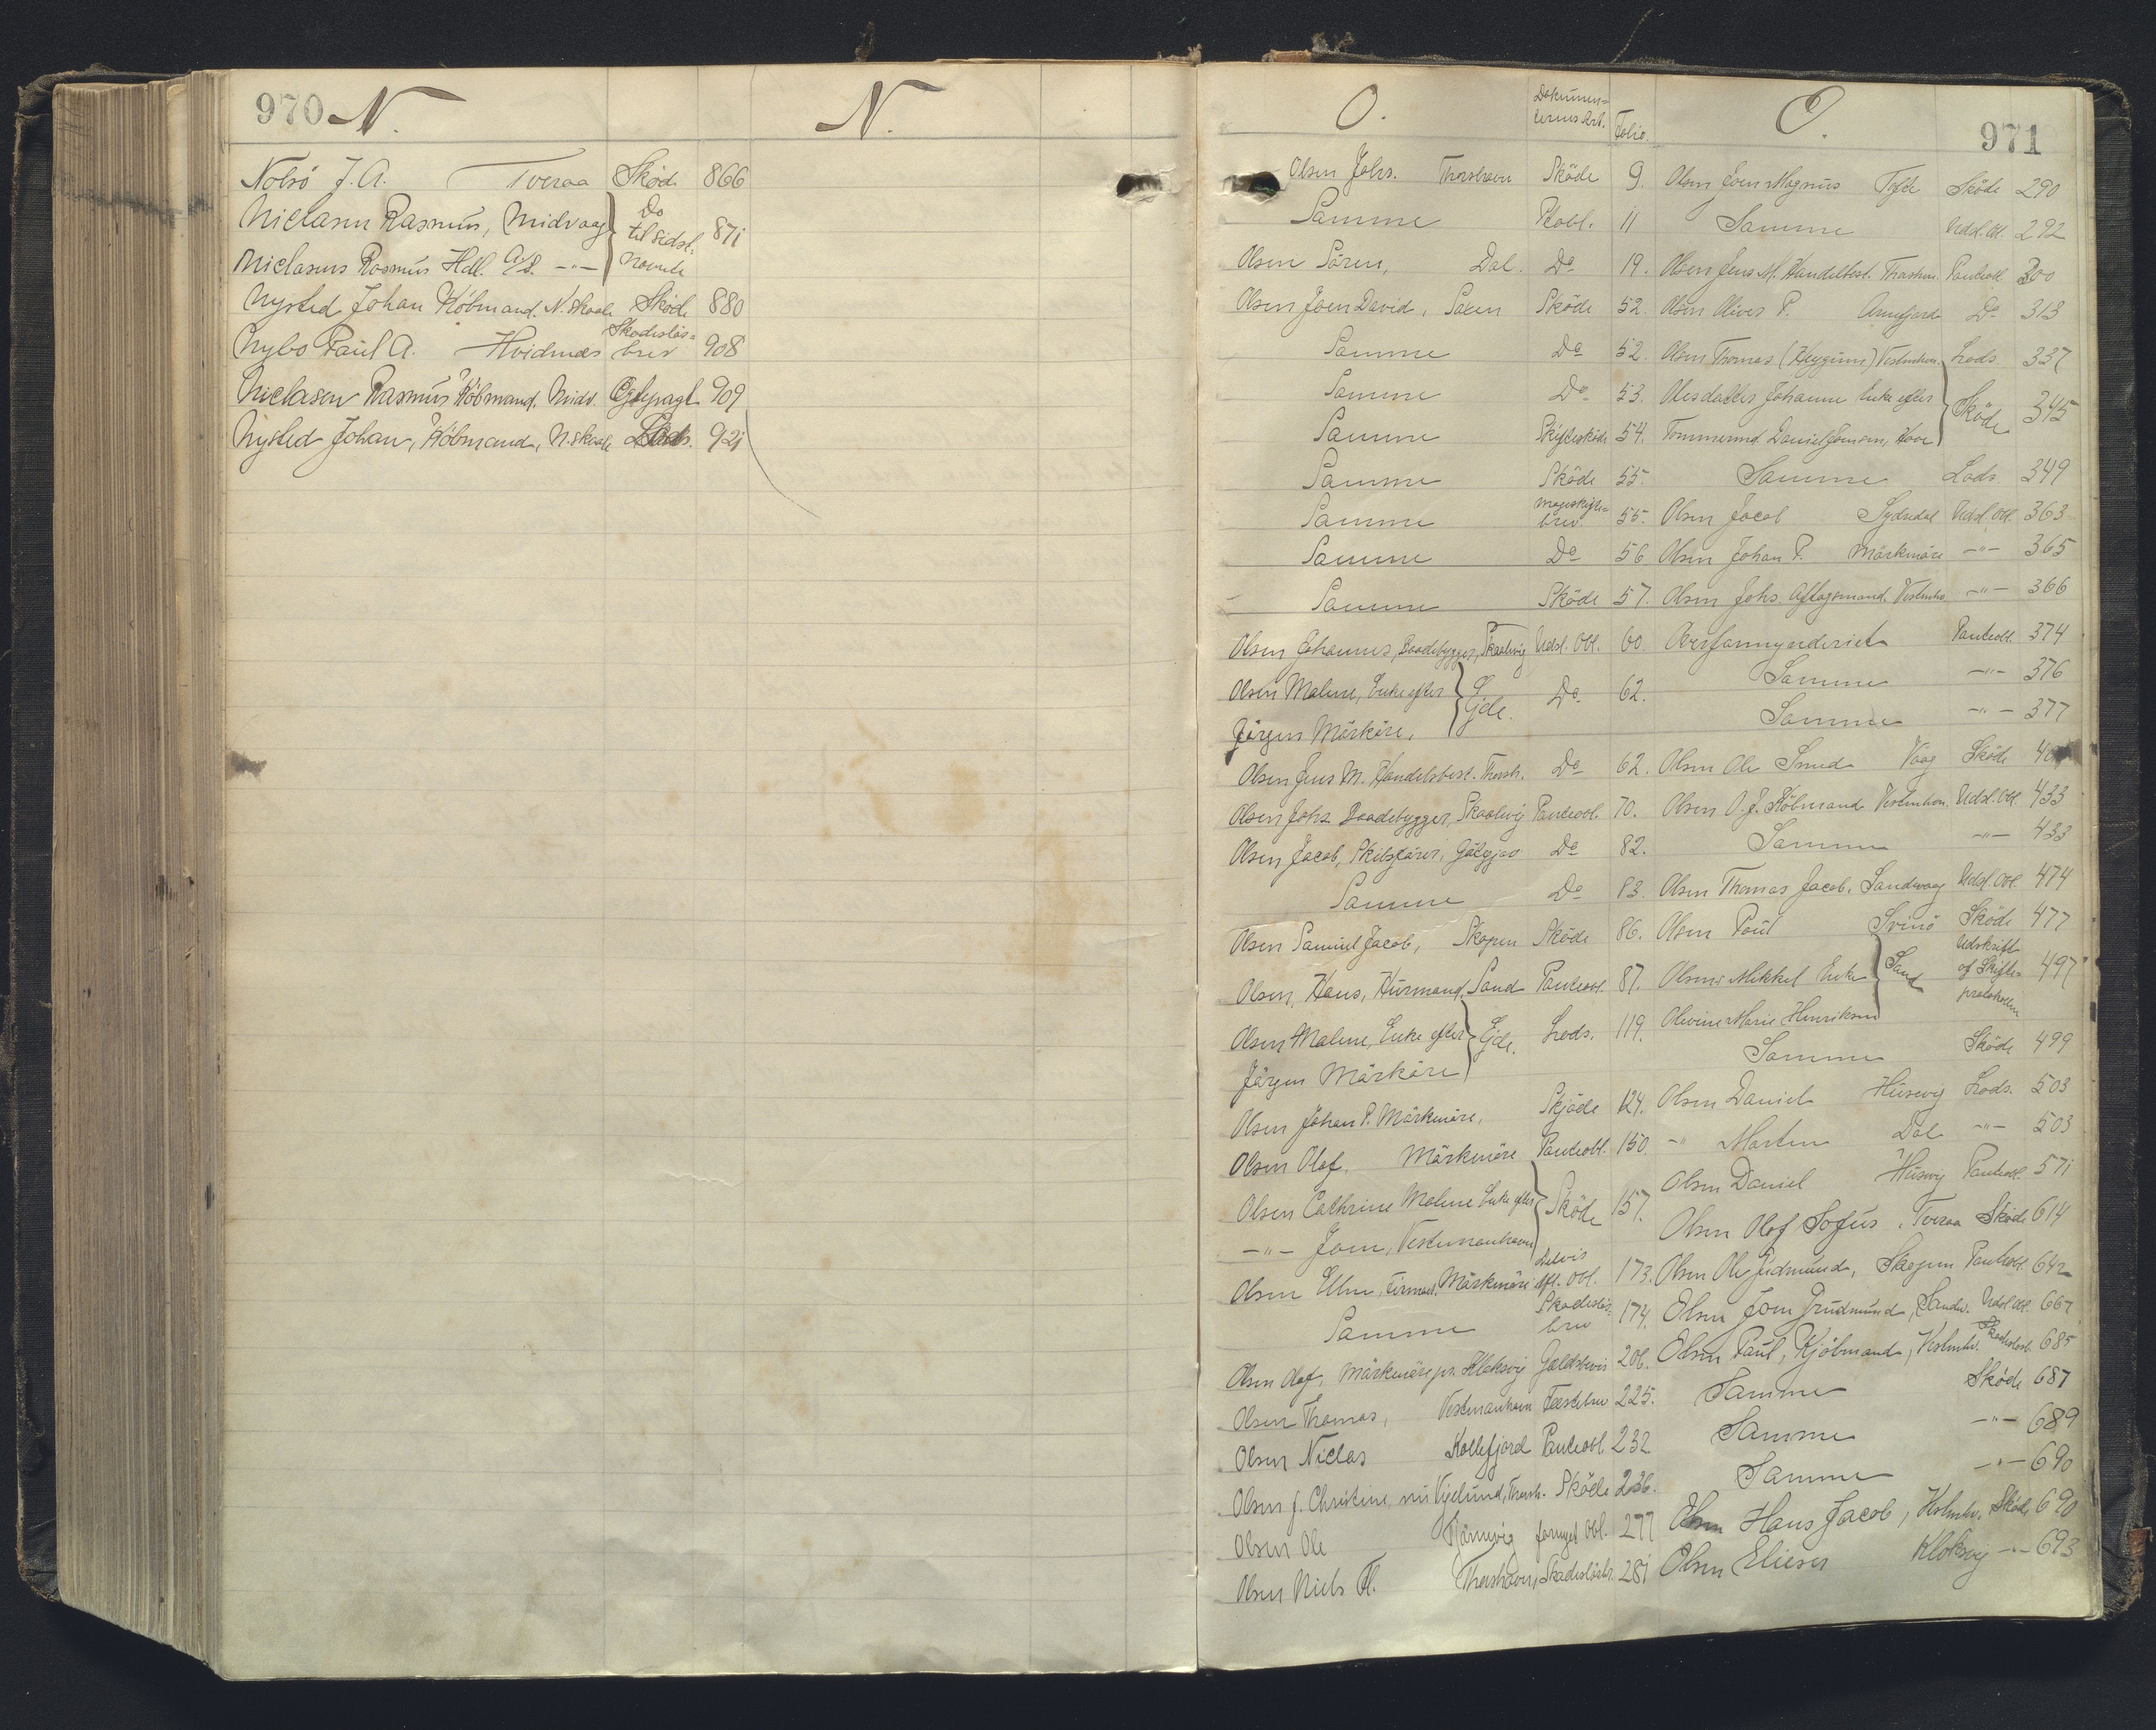 970 N.
N.
Nolsö J. A. Tveraa Sköd. 866
Niclasen Rasmus, Midvaag } Do til sidst- 871
Niclasens Rasmus Hdl. A/S. -"- nævnte
Nysted Johan Köbmand. N. Skaale Sköde 880
Skadeslös=
Nybo Paul A. Hvidnæs brev 908
Niclasen Rasmus Köbmand. Midv. Egtepagt 909
Nysted Johan, Köbmand, N. Skaale 921
O.
Dokumen=
ternes Art.
Folio.
Olsen Johs. Thorshavn Sköde 9.
Samme Ptobl. 11
Olsen Sören, Dal. Do 19.
Olsen Joen David, Saxen Sköde 52.
Samme Do 52.
Samme Do 53.
Samme Skifteskøde 54.
Samme Sköde 55.
Mageskifte=
Samme brev 55.
Samme Do 56
Samme Sköde 57.
Olsen Johannes, Baadebygger, Skaalevig Udsl. Obl. 60.
Olsen Malene, Enke efter } Gjde. Do 62.
Jörgen Mörköre,
Olsen Jens M. Handelsbest. Thorsh. Do 62.
Olsen Johs. Baadebygger, Skaalevig Panteobl. 70.
Olsen Jacob, Skibsförer, Do 82.
Samme Do 83.
Olsen Samuel Jacob, Skopen Sköde 86.
Olsen, Hans, Husmand, Sand Panteobl. 87.
Olsen Malene, Enke efter } Gjde. Lods. 119.
Jörgen Mörköre
Olsen Johan P. Mörkmöre, Skjöde 124.
Olsen Olaf. Mörkmöre Panteobl. 150.
Olsen Cathrine Malene Enke efter } Sköde 157.
-"- Joen, Vestmanhavn
Olsen Mörkmöre Obl. 173.
Skadeslös
Samme brev 174.
Olsen Olaf, Mörkmöre pr. Klaksvig Gældsbevis 206.
Olsen Thomas, Vestmanhavn Fæstebrev 225.
Olsen Niclas Kollefjord Panteobl. 232
Olsen f. Christine nu Vigelund, Thorsh. Sköde 236.
Olsen Ole fornyet Obl. 277
Olsen Niels Thorshavn, Skadeslösbr. 281
O.
971
Olsen Joen Magnus Tofte Sköde 290
Samme Udsl. Obl. 292
Olsen Jens M. Handelsbest. Thorshvn. Panteobl. 300
Olsen Oliver P. Do 313
Olsen Thomas (Heygum) Vestmhvn. Lods. 337
Olesdatter Johanne Enke efter } Sköde 345
Tømmermd. Daniel Joensen, Hove
Samme Lods 349
Olsen Jacob Sydredal Udsl. Obl. 363
Olsen Johan P. Mörkmöre -"- 365
Olsen Johs. Aftægtsmand. Vestmhv. -"- 366
Overformynderiet Panteobl. 374
Samme -"- 376
Samme -"- 377
Olsen Ole Smed Vaag Sköde
Olsen O. J. Köbmand Vestmhvn. Udsl. Obl. 433
Samme -"- 433
Olsen Thomas Jacob, Sandvaag Udsl. Obl. 474
Olsen Poul Svinö Sköde 477
Udskrift
Olsens Mikkel Enke } Sand af Skifte= 497
protokollen
Olevine Marie Henriksen
Samme Sköde 499
Olsen Daniel Husevig Lods. 503
-" Morten Dal -"- 503
Olsen Daniel Husevig Panteobl. 571
Olsen Olaf Sofus, Tveraa Sköde 614
Olsen Ole Gudmund, Skopun Panteobl. 642
Olsen Joen Gudmund, Sandv. Udsl. Obl. 667
Olsen Paul, Kjöbmand, Vestmhv. Skadeslösbr. 685
Samme Sköde 687
Samme -"- 689
Samme -"- 690
Olsen Hans Jacob, Vestmhv. Sköde 690
Olsen Elieser Klaksvig -"- 693